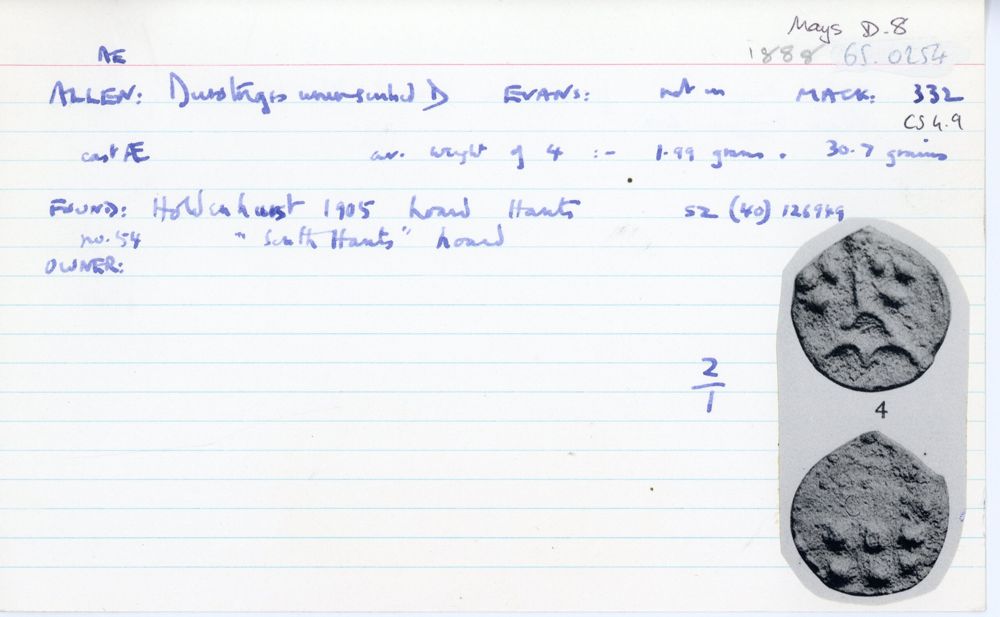 Mays D.8
1888 65.0254
AE
ALLEN: Durotriges uninscribed D EVANS: not in MACK: 332
CS 4.9
cast Æ av. weight of 4 :- 1.99 grams. 30.7 grains
FOUND: Holdenhurst 1905 hoard Hants SZ (40) 126949
no. 54 "South Hants" hoard
OWNER:
2
1
4